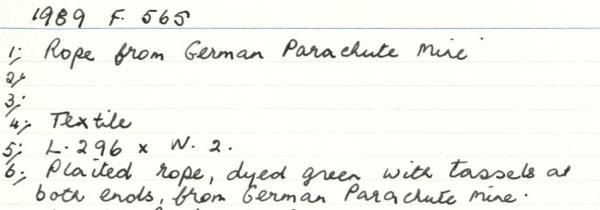 1989 F. 565
1; Rope from German Parachute Mine
2;
3;
4; Textile
5; L. 296 x W. 2.
6; Plaited rope, dyed green with tassels at
both ends, from German Parachute Mine.